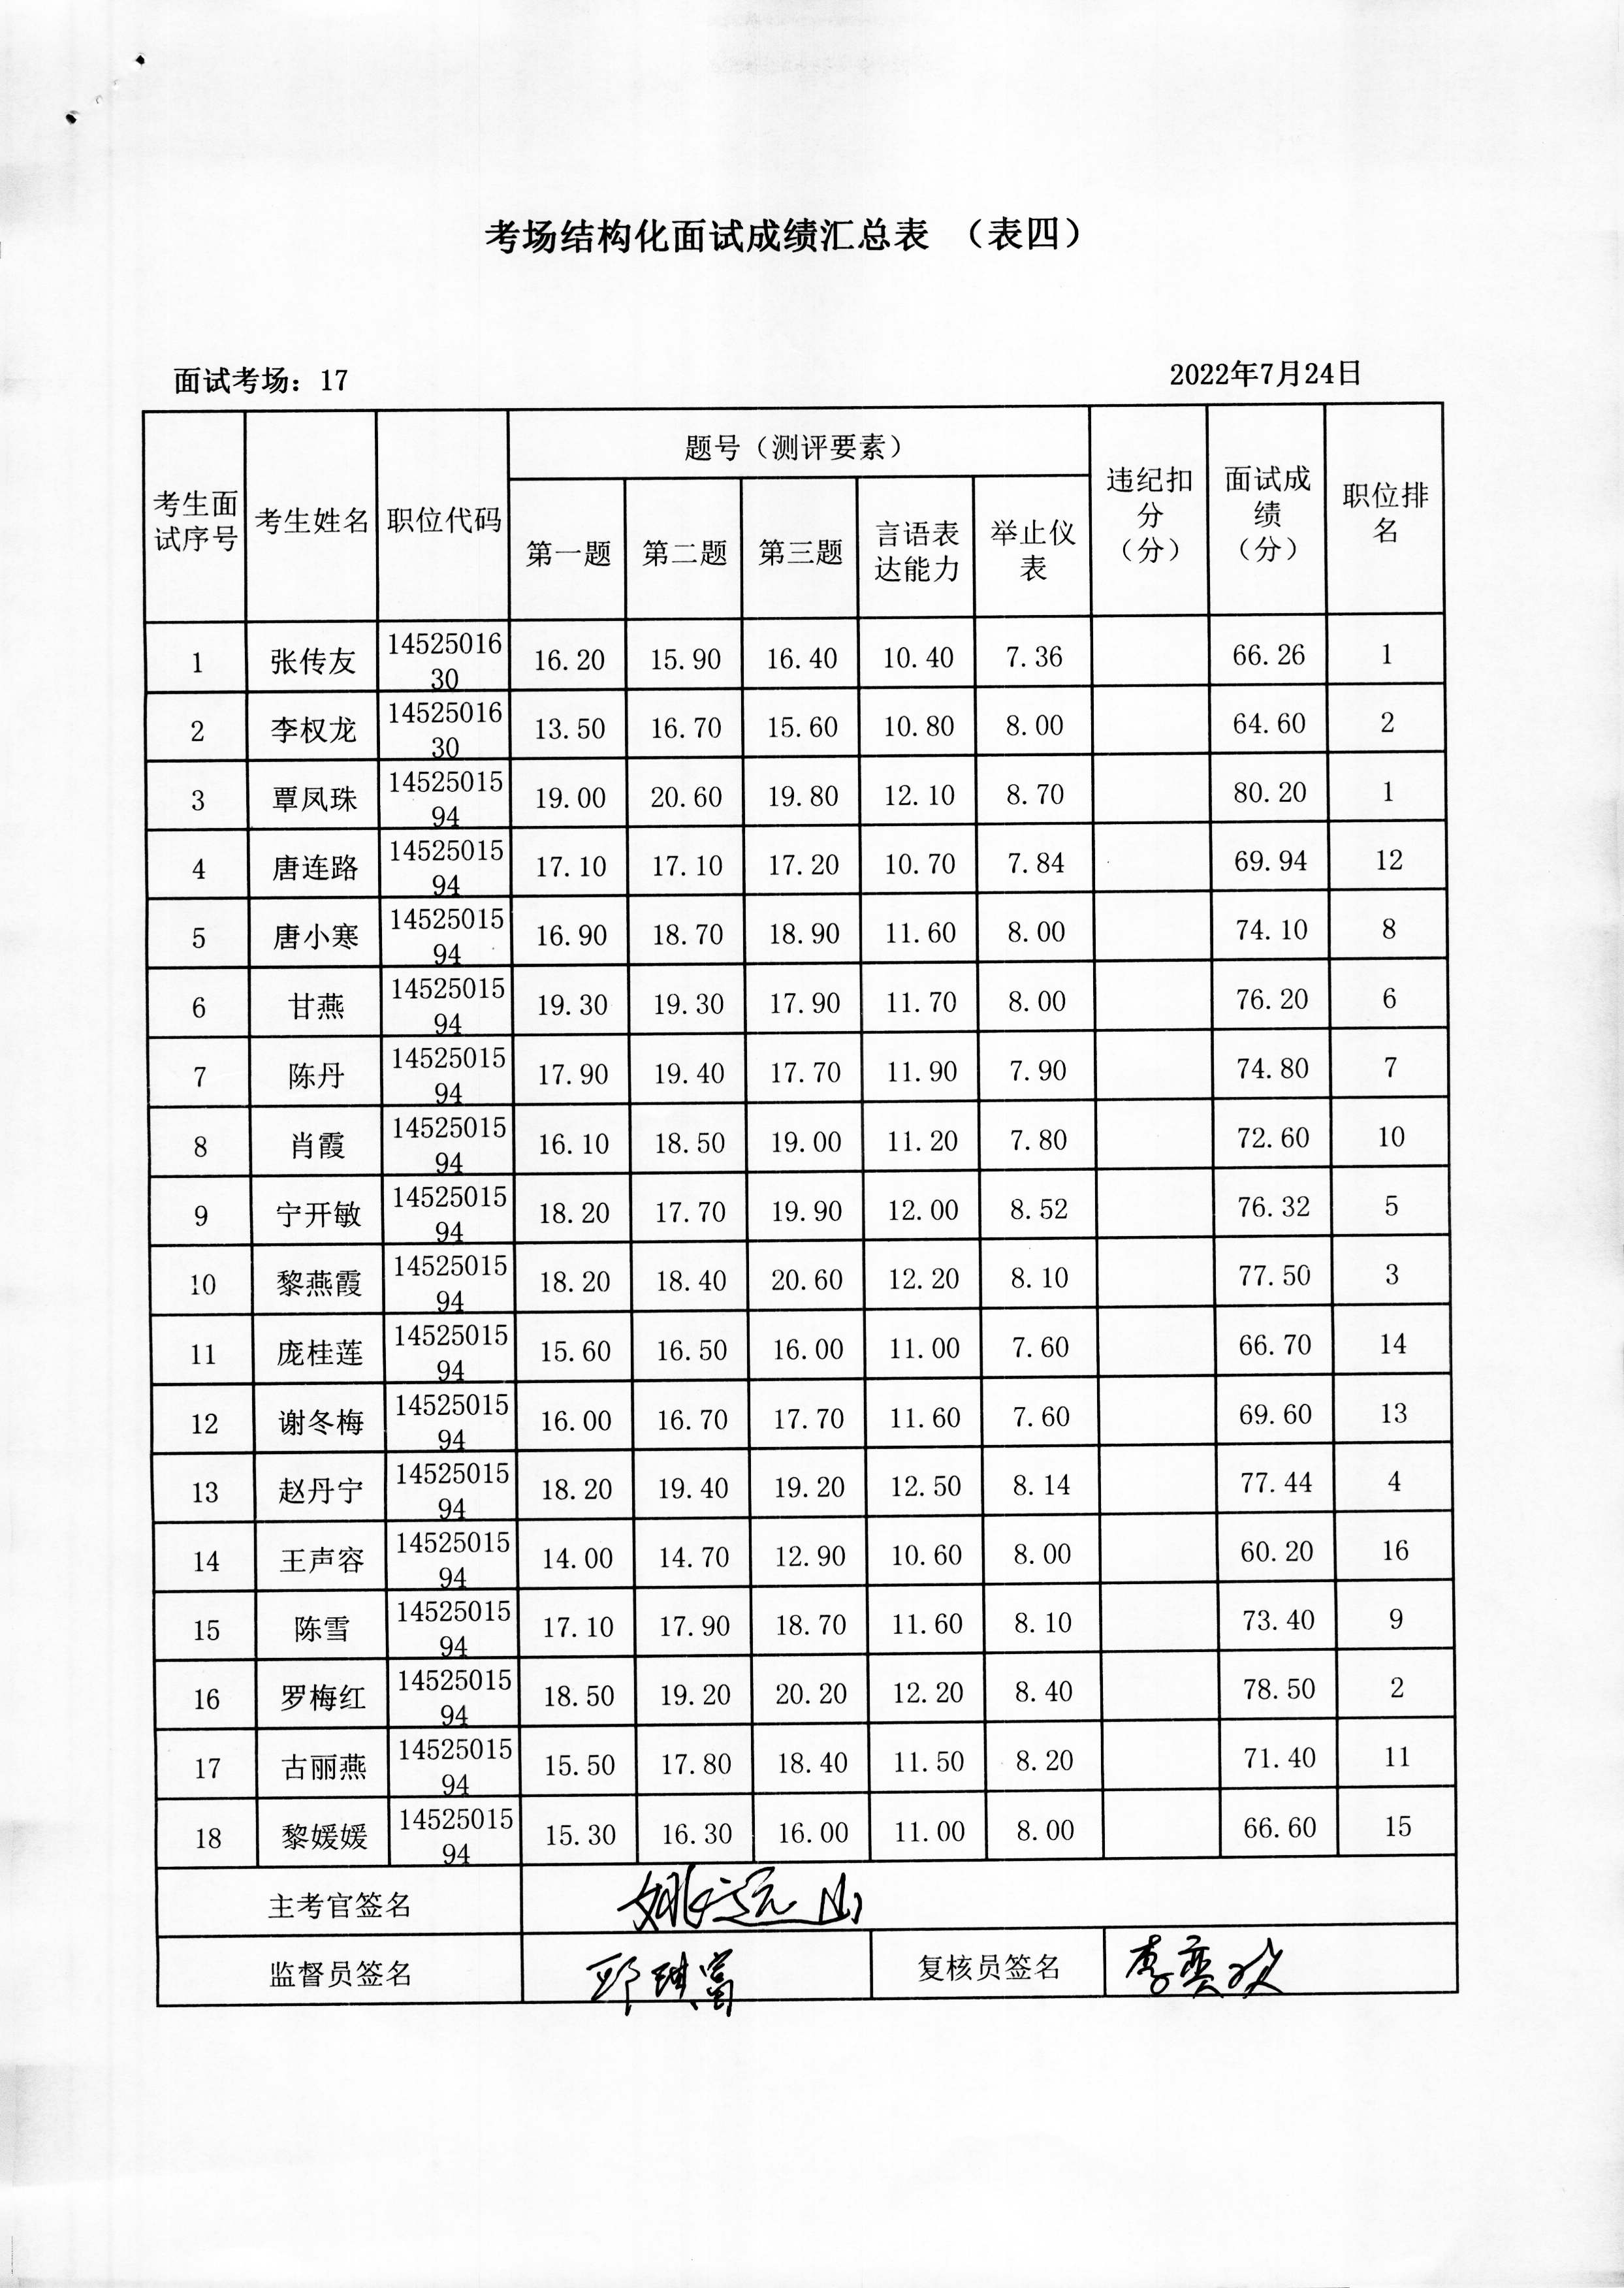 考场结构化面试成绩汇总表 （表四）
面试考场：17 2022年7月24日
考生面试序号 考生姓名 职位代码 题号（测评要素） 违纪扣分（分） 面试成绩（分） 职位排名
第一题 第二题 第三题 言语表达能力 举止仪表
1 张传友 1452501630 16.20 15.90 16.40 10.40 7.36 66.26 1
2 李权龙 1452501630 13.50 16.70 15.60 10.80 8.00 64.60 2
3 覃凤珠 1452501594 19.00 20.60 19.80 12.10 8.70 80.20 1
4 唐连路 1452501594 17.10 17.10 17.20 10.70 7.84 69.94 12
5 唐小寒 1452501594 16.90 18.70 18.90 11.60 8.00 74.10 8
6 甘燕 1452501594 19.30 19.30 17.90 11.70 8.00 76.20 6
7 陈丹 1452501594 17.90 19.40 17.70 11.90 7.90 74.80 7
8 肖霞 1452501594 16.10 18.50 19.00 11.20 7.80 72.60 10
9 宁开敏 1452501594 18.20 17.70 19.90 12.00 8.52 76.32 5
10 黎燕霞 1452501594 18.20 18.40 20.60 12.20 8.10 77.50 3
11 庞桂莲 1452501594 15.60 16.50 16.00 11.00 7.60 66.70 14
12 谢冬梅 1452501594 16.00 16.70 17.70 11.60 7.60 69.60 13
13 赵丹宁 1452501594 18.20 19.40 19.20 12.50 8.14 77.44 4
14 王声容 1452501594 14.00 14.70 12.90 10.60 8.00 60.20 16
15 陈雪 1452501594 17.10 17.90 18.70 11.60 8.10 73.40 9
16 罗梅红 1452501594 18.50 19.20 20.20 12.20 8.40 78.50 2
17 古丽燕 1452501594 15.50 17.80 18.40 11.50 8.20 71.40 11
18 黎媛媛 1452501594 15.30 16.30 16.00 11.00 8.00 66.60 15
主考官签名 姚远山
监督员签名 复核员签名